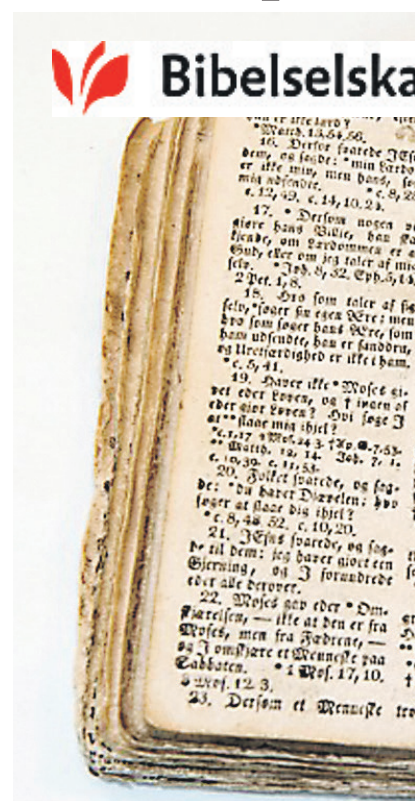 Bibelselska
*Matth. 13,54,56.
16. Derfor svarede JEs
dem, og sagde: *min Lærdo
er ikke min, men hans, so
mig udsendte. *c. 8, 28
c. 12, 49. c. 14, 10. 24.
17. * Dersom nogen vi
giøre hans Villie, han ska
kjende, om Lærdommen er a
Gud, eller om jeg taler af mig
selv. *Joh. 8, 32. Eph. 5,
2 Pet. 1, 8.
18. Hvo som taler af sig
selv, *søger sin egen Ære; men
hvo som søger hans Ære, som
ham udsendte, han er sanddru,
og Uretfærdighed er ikke i ham.
*c. 5, 41.
19. Haver ikke *Moses gi-
vet eder Loven, og † ingen af
eder giør Loven? Hvi søge I
at ** slaae mig ihjel?
*c. 1.17 2 Mos. 24 3. 7.53.
** Matth. 12, 14. Joh. 7. 1.
c. 10,39. c. 11,53.
20. Folket svarede, og sag-
de: *du haver Djævelen; hvo
søger at slaae dig ihjel?
*c. 8, 48. 52. c. 10, 20.
21. JEsus svarede, og sag-
de til dem: jeg haver giort een
Gierning, og I forundrede
eder alle derover.
22. Moses gav eder * Om-
skjærelsen, — ikke at den er fra
Moses, men fra Fædrene, —
og I omskjære et Menneske paa
Sabbaten. * 1 Mos. 17, 10.
3 Mos. 12. 3.
23. Dersom et Menneske